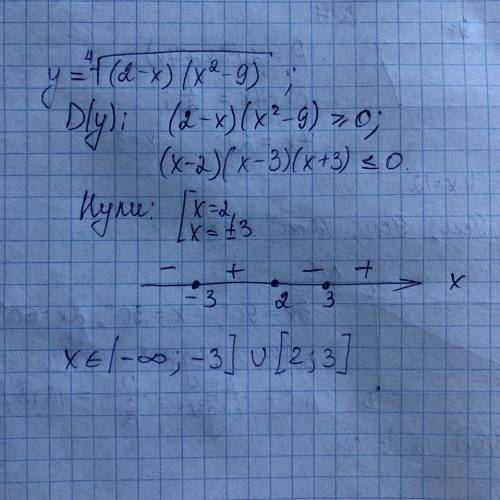 y = ⁴√(2-x)(x²-9) ;
D(y): (2-x)(x²-9) ≥ 0;
(x-2)(x-3)(x+3) ≤ 0.
Нули: [x=2,
x = ±3.
- + - +
-3 2 3 x
x ∈ (-∞; -3] ∪ [2; 3]